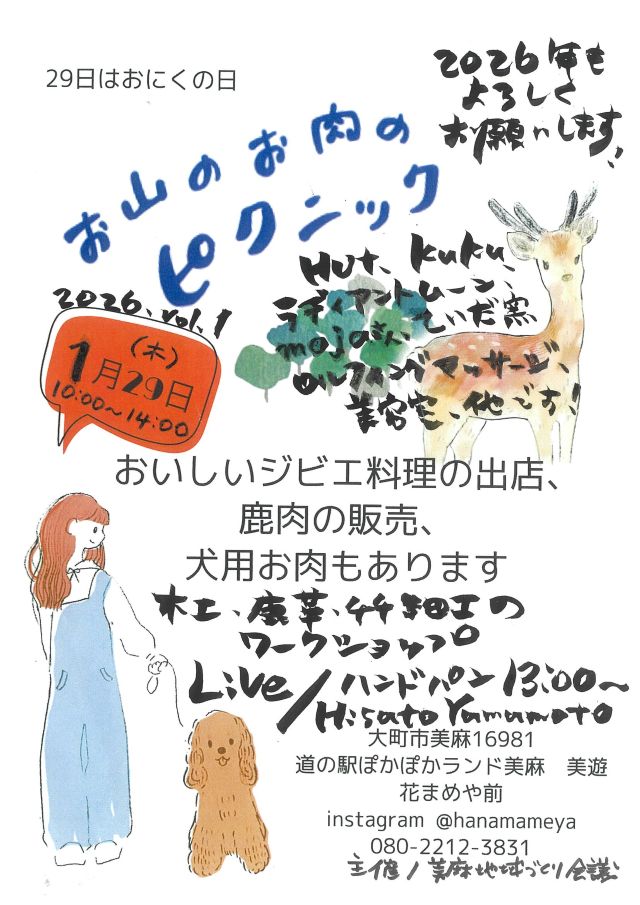 29日はおにくの日
2026年も
よろしく
お願いします!
お山のお肉の
ピクニック
2026.vol.1
1月29日
(木)
10:00〜14:00
Hut、kuku、
ラディアントムーン、
mojaさん、てぃだ窯
ロルフィングマッサージ、
美容室、他です!
おいしいジビエ料理の出店、
鹿肉の販売、
犬用お肉もあります
木工、鹿革、竹細工の
ワークショップ
Live/ハンドパン 13:00〜
Hisato Yamamoto
大町市美麻16981
道の駅ぽかぽかランド美麻 美遊
花まめや前
instagram @hanamameya
080-2212-3831
主催/美麻地域づくり会議